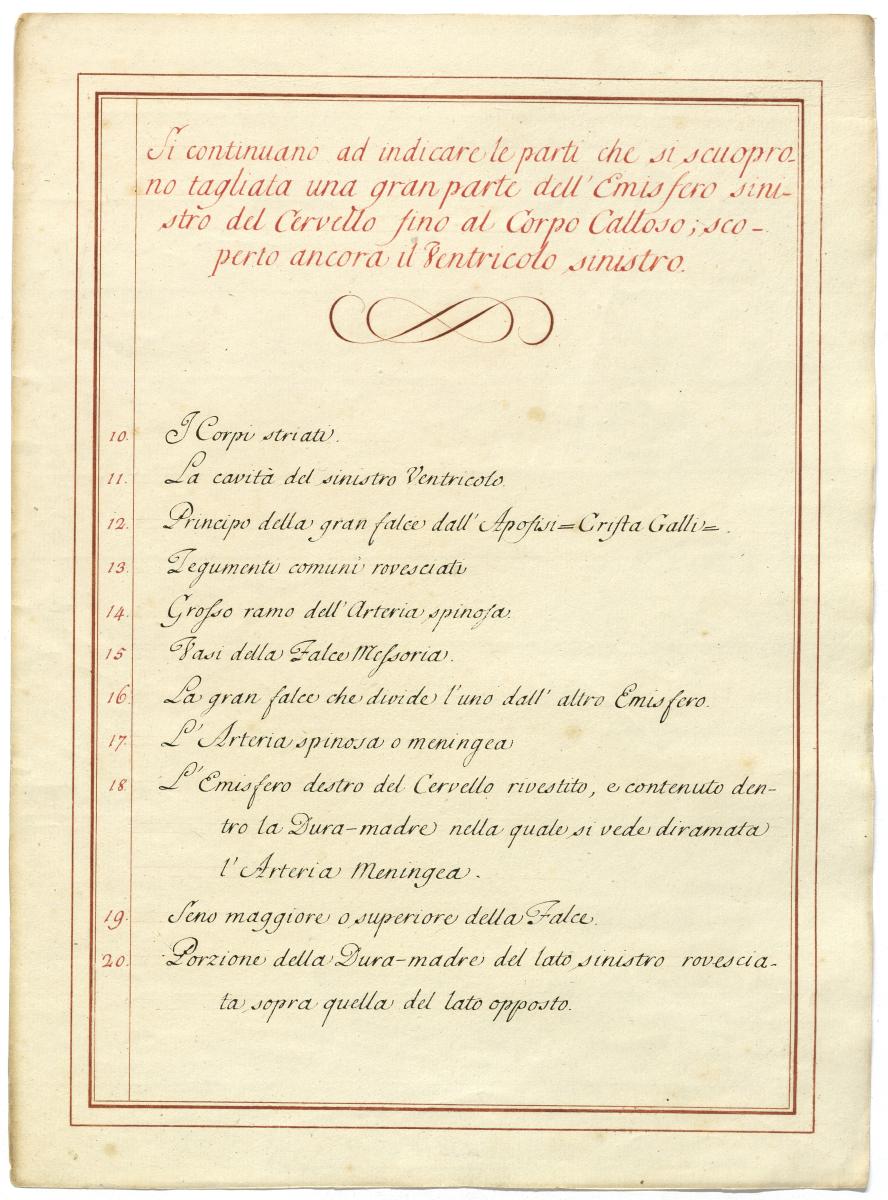 Si continuano ad indicare le parti che si scuopro-
no tagliata una gran parte dell'Emisfero sini-
stro del Cervello fino al Corpo Calloso; sco-
perto ancora il Ventricolo sinistro.
10. I Corpi striati.
11. La cavità del sinistro Ventricolo
12. Principo della gran falce dall'Apofisi=Crista Galli=.
13. Tegumenti comuni rovesciati
14. Grosso ramo dell'Arteria spinosa.
15 Vasi della Falce Messoria.
16. La gran falce che divide l'uno dall'altro Emisfero.
17. L'Arteria spinosa o meningea
18. L'Emisfero destro del Cervello rivestito, e contenuto den-
tro la Dura-madre nella quale si vede diramata
l'Arteria Meningea.
19. Seno maggiore o superiore della Falce.
20. Porzione della Dura-madre del lato sinistro rovescia-
ta sopra quella del lato opposto.